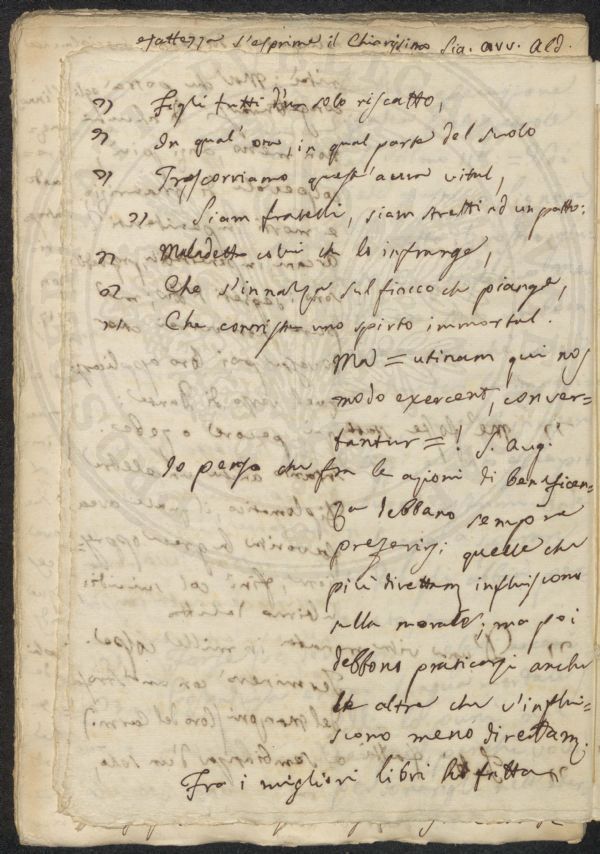 esattezza s'esprime il Chiarissimo Sig. avv. Ald.
") Figli tutti d'un solo riscatto,
") In qual' ora, in qual parte del suolo
") Trascorriamo quest'aura vital,
") Siam fratelli, siam stretti ad un patto:
") Maladetto colui che lo infrange,
") Che s'innalza sul fiacco che piange,
") Che contrista uno spirto immortal.
Ma = utinam qui nos
modo exercent, conver=
tantur = ! S. Aug.
Io penso che fra le azioni di beneficen=
za debbano sempre
preferirsi quelle che
più direttam. influiscono
sulla morale; ma poi
debbono praticarsi anche
le altre che v'influi=
scono meno direttam.
Fra i migliori libri